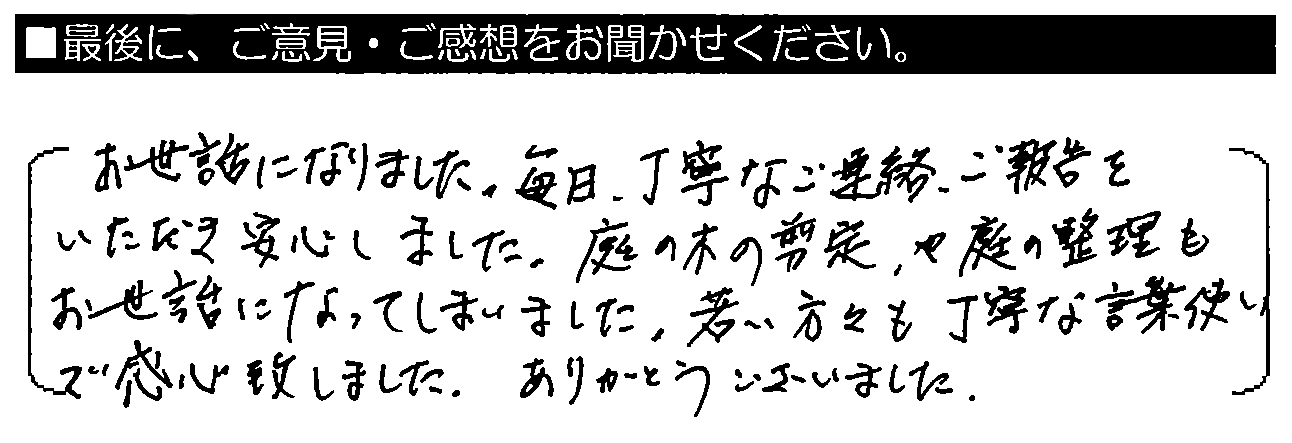 ■最後に、ご意見・ご感想をお聞かせください。
お世話になりました。毎日、丁寧なご連絡、ご報告を
いただき安心しました。庭の木の剪定、や庭の整理も
お世話になってしまいました。若い方々も丁寧な言葉使い
で感心致しました。ありがとうございました。